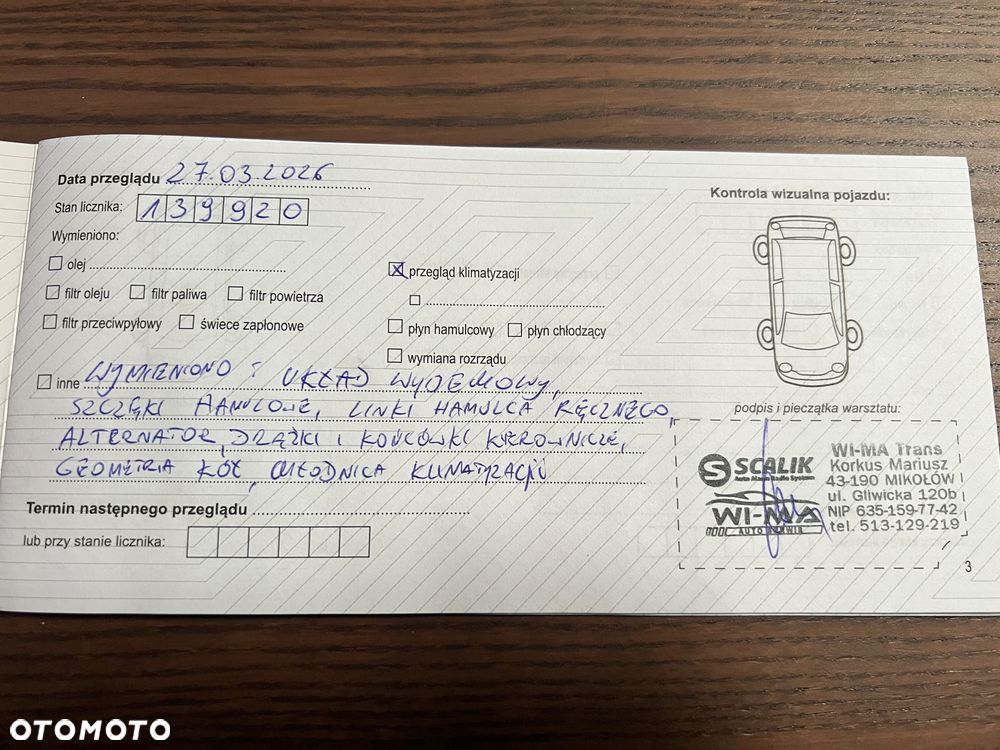 Data przeglądu 27.03.2026
Stan licznika: 139920
Wymieniono:
olej
filtr oleju filtr paliwa filtr powietrza
filtr przeciwpyłowy świece zapłonowe
przegląd klimatyzacji
płyn hamulcowy płyn chłodzący
wymiana rozrządu
inne WYMIENIONO : UKŁAD WYDECHOWY,
SZCZĘKI HAMULCOWE, LINKI HAMULCA RĘCZNEGO,
ALTERNATOR, DRĄŻKI I KOŃCÓWKI KIEROWNICZE,
GEOMETRIA KÓŁ, CHŁODNICA KLIMATYZACJI
Termin następnego przeglądu
lub przy stanie licznika:
Kontrola wizualna pojazdu:
podpis i pieczątka warsztatu:
SCALIK
Auto Alarm Radio System
WI-MA
AUTO SERWIS
WI-MA Trans
Korkus Mariusz
43-190 MIKOŁÓW
ul. Gliwicka 120b
NIP 635-159-77-42
tel. 513-129-219
3
OTOMOTO